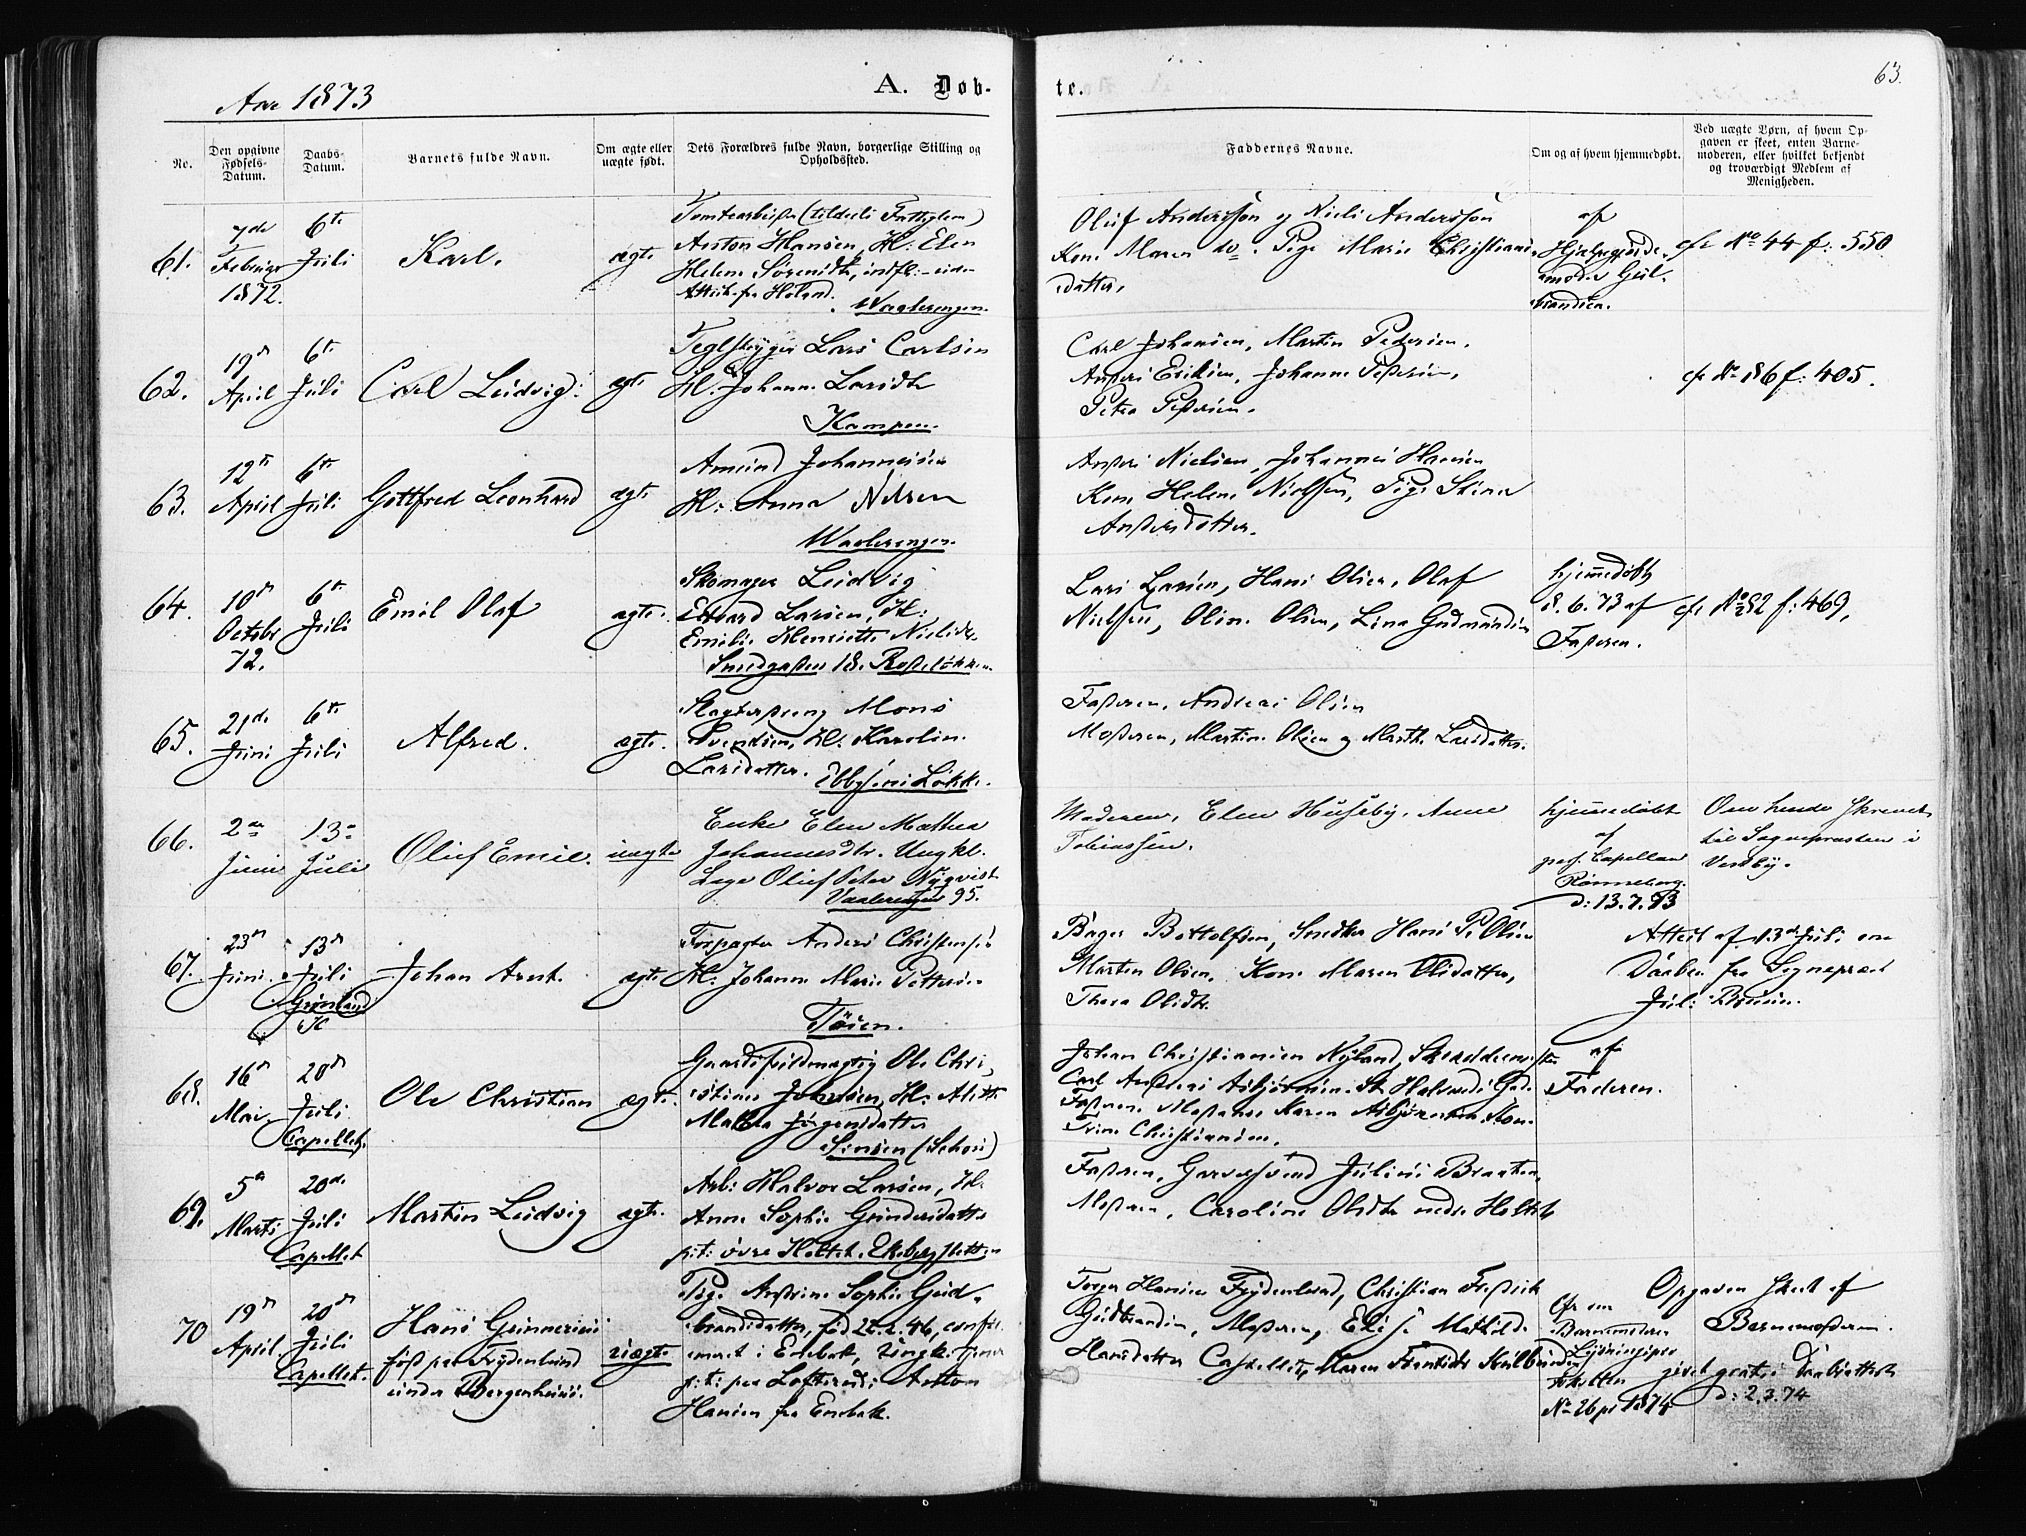 Aar 1873
A. Døb-
te.
63.
No.
Den opgivne
Fødsels-
Datum.
Daabs-
Datum.
Barnets fulde Navn.
Om ægte eller
uægte født.
Dets Forældres fulde Navn, borgerlige Stilling og
Opholdssted.
Faddernes Navne.
Om og af hvem hjemmedøbt.
Ved uægte Børn, af hvem Op-
gaven er skeet, enten Barne-
moderen, eller hvilket bekjendt
og troværdigt Medlem af
Menigheden.
61.
7de
Februar
1872.
6te
Juli
Karl.
ægte
Tomtearbeider (tildeels Fattiglem)
Anton Hansen, H: Elen
Helene Sørensdtr,
Attest fra Høland.
Waalerengen.
Oluf Anderssøn og Niels Anderssøn
Kone Maren do. Pige Marie Christians-
datter.
af
Gul-
brandsen.
cfr No 44 f: 550
62.
19d
April
6te
Juli
Carl Ludvig.
ægte
Teglstryger Lars Carlsen
H. Johanne Larsdtr
Kampen.
Carl Johansen, Martin Pedersen.
Anders Eriksen, Johanne Pedersen,
Petra Pedersen.
cfr No 186 f: 405.
63.
12te
April
6te
Juli
Gottfred Leonhard
ægte
Amund Johannesen
H: Anna Nilsen
Waalerengen.
Anders Nielsen, Johannes Hansen
Kone Helene Nielsen, Pige Stina
Andersdatter.
64.
10de
Octobr
72.
6te
Juli
Emil Olaf
ægte.
Skomager Ludvig
Edvard Larsen, H:
Emilie Henriette Nielsdtr
Smedgaden 18. Rodeløkken.
Lars Larsen, Hans Olsen, Olaf
Nielsen, Oline Olsen, Lina Gudmundsen
hjemmedøbt
8.6.73 af
Faderen.
cfr No 282 f: 469,
65.
21de
Juni
6te
Juli
Alfred.
ægte.
Slagterdreng Mons
Svendsen, H: Karoline
Larsdatter.
Ebbesens Løkke.
Faderen, Andreas Olsen
Moderen, Martine Olsen og Marthe Larsdatter.
66.
2den
Juni
13de
Juli
Oluf Emil.
uægte
Enke Elen Mathea
Johannesdtr. Ungkl.
Lars Oluf Peter Nyqvist
Vaalerengen 95.
Moderen, Elen Huseby, Anne
Tobiassen.
hjemmedøbt
af
pers. Capellan
Rønneberg.
d: 13.7.73
Om hende skrevet
til Sognepræsten i
Vestby.
67.
23de
Juni.
13de
Juli
Grønland
K
Johan Arnt.
ægte
Forpagter Anders Christensen
H. Johanne Marie Pettersen
Tøien.
Bager Bottolfsen, Snedker Hans P. Olsen
Morten Olsen, Kone Maren Olsdatter,
Thora Olsdtr.
Attest af 13de Juli om
Daaben fra Sognepræst
Jul: Riddervold.
68.
16de
Mai.
20de
Juli
Capellet.
Ole Christian
ægte.
Gaardsfuldmægtig Ole Chri-
stian Johnsen, H: Mette
Malena Jørgensdatter
Sinsen (Schou)
Johan Christiansen Nyland, Skræddermester
Carl Anders Asbjørnsen.
Faderen. Moderen. Karen Asbjørnsen. Kone
Trine Christiansen.
af
Faderen.
69.
5te
Marts
20de
Juli
Capellet
Martin Ludvig
ægte.
Arb: Halvor Larsen, H.
Anne Sophie Gundersdatter
p.t: øvre Holtet. Ekebergsletten
Faderen, Garversvend Julius Braaten
Moderen, Caroline Olsdtr nedre Holtet
70
19de
April.
20de
Juli
Capellet.
Hans Grinnerius
født paa Frydenlund
under Bergenhuus.
uægte.
Pige Andrine Sophie Guld-
brandsdatter, født 22.2.46, confir-
meret i Enebak, Ungk: Tjener
p.t: paa Lofterud: Anton
Hansen fra Enebak.
Torger Hansen Frydenlund, Christian Fredrik
Guldbrandsen, Moderen, Elise Mathilde
Hansdatter Capellet,
Barnemoderen
No 26 pr 1874
Opgaven skeet af
Barnemoderen.
givet gratis Daabsattest
d: 2.3.74